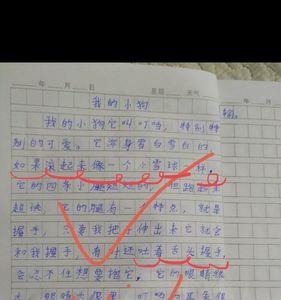 年 月 日 星期 天气
我的小狗
我的小狗它叫叮当，特别特
别的可爱。它浑身雪白雪白的，
如果滚起来像一个小雪球一样，
它的四条小腿短短的，但跑起来
超快，它的腿有一个特点，就是
握手，只要我把手伸出来它就会
和我握手，有时还吐着舌头握手，
会忍不住想要抱它。它的眼睛很